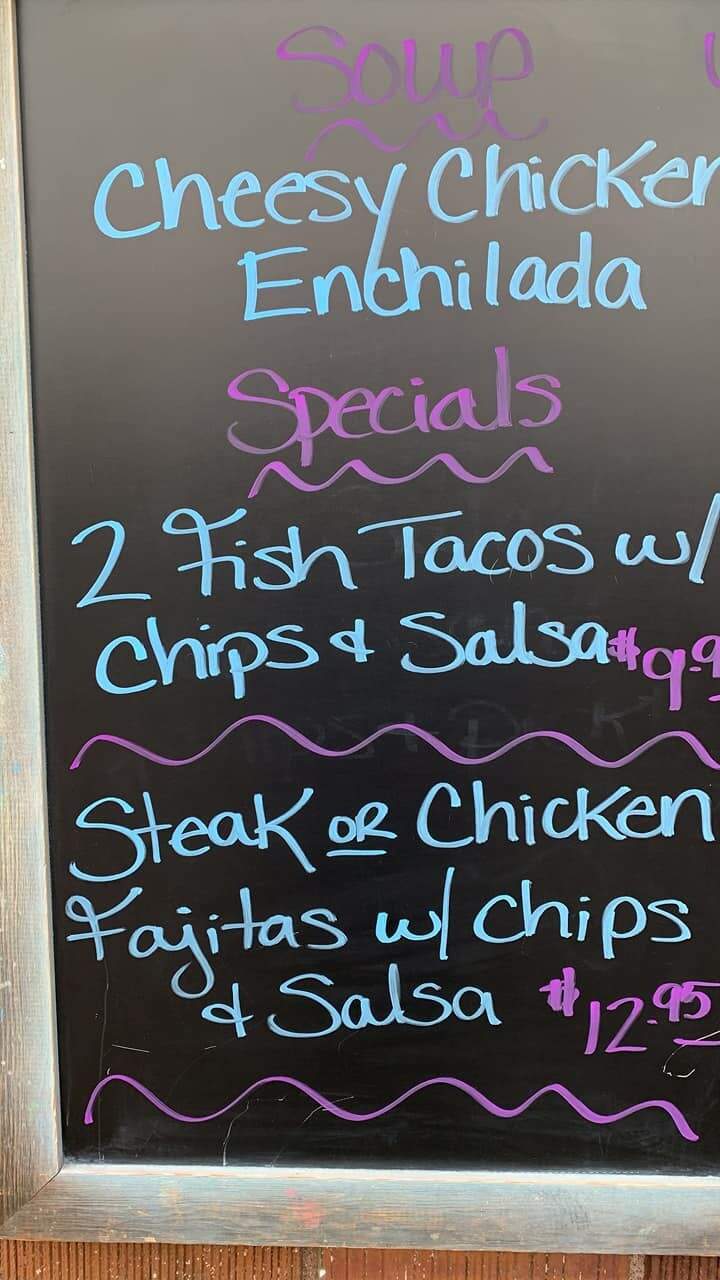 Soup
Cheesy Chicken
Enchilada
Specials
2 Fish Tacos w/
Chips & Salsa $9.9
Steak OR Chicken
Fajitas w/ Chips
& Salsa $12.95